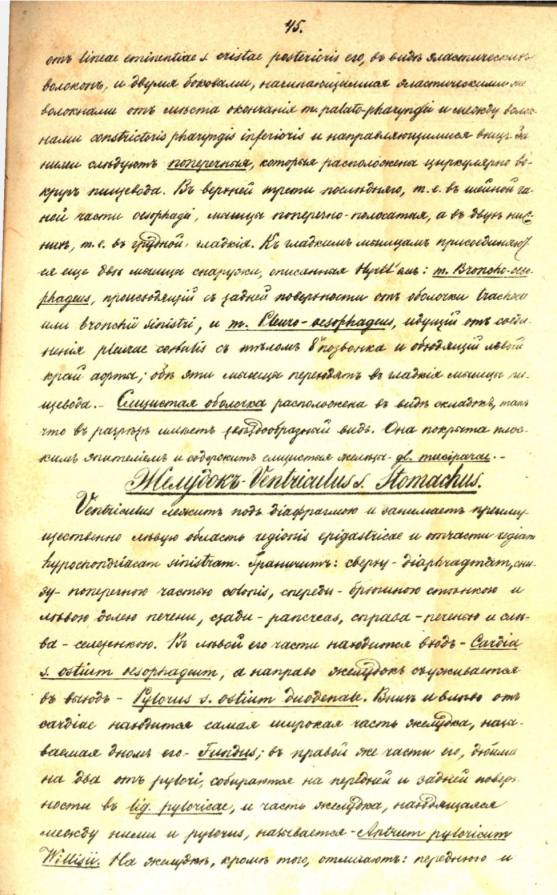 45.
отъ lineae eminentiae s. cristae posterioris его, въ видѣ эластическихъ
волоконъ, и двумя боковыми, начинающимися эластическими же
волокнами отъ мѣста окончанія m. palato-pharyngei и между волок-
нами constrictoris pharyngis inferioris и направляющимися внизъ. За
ними слѣдуютъ поперечныя, которыя расположены циркулярно во-
кругъ пищевода. Въ верхней трети послѣдняго, т.е. въ шейной
ной части oesophagi, мышцы поперечно-полосатыя, а въ двухъ ниж-
нихъ, т.е. въ грудной, гладкія. Къ гладкимъ мышцамъ присоединяют-
ся еще двѣ мышцы снаружи, описанныя Hyrtl'емъ: m. Broncho-oeso-
phageus, происходящій съ задней поверхности отъ оболочки tracheae
или bronchii sinistri, и m. Pleuro-oesophageus, идущій отъ соеди-
ненія pleurae costalis съ тѣломъ 8 позвонка и обходящій лѣвый
край аорты; обѣ эти мышцы переходятъ въ гладкія мышцы пи-
щевода. - Слизистая оболочка расположена въ видѣ складокъ, такъ
что въ разрѣзѣ имѣетъ звѣздообразный видъ. Она покрыта плос-
кимъ эпителіемъ и содержитъ слизистыя железы - gl. muciparae. -
Желудокъ - Ventriculus s. Stomachus.
Ventriculus лежитъ подъ діафрагмою и занимаетъ преиму-
щественно лѣвую область regionis epigastricae и отчасти regionem
hypochondriacam sinistram. Граничитъ: сверху - diaphragmam, сни-
зу - поперечною частью colonis, спереди - брюшною стѣнкою и
лѣвою долею печени, сзади - pancreas, справа - печенью и слѣ-
ва - селезенкою. Въ лѣвой его части находится входъ - Cardia
s. ostium oesophageum, а направо желудокъ съуживается
въ выходъ - Pylorus s. ostium duodenale. Внизъ и влѣво отъ
cardiae находится самая широкая часть желудка, назы-
ваемая дномъ его - Fundus; въ правой же части его, дюйма
на два отъ pylori, собираются на передней и задней повер-
ности въ lig. pyloricae, и часть желудка, находящаяся
между ними и pylorus, называется - Antrum pyloricum
Willisii. На желудкѣ, кромѣ того, отличаютъ: переднюю и